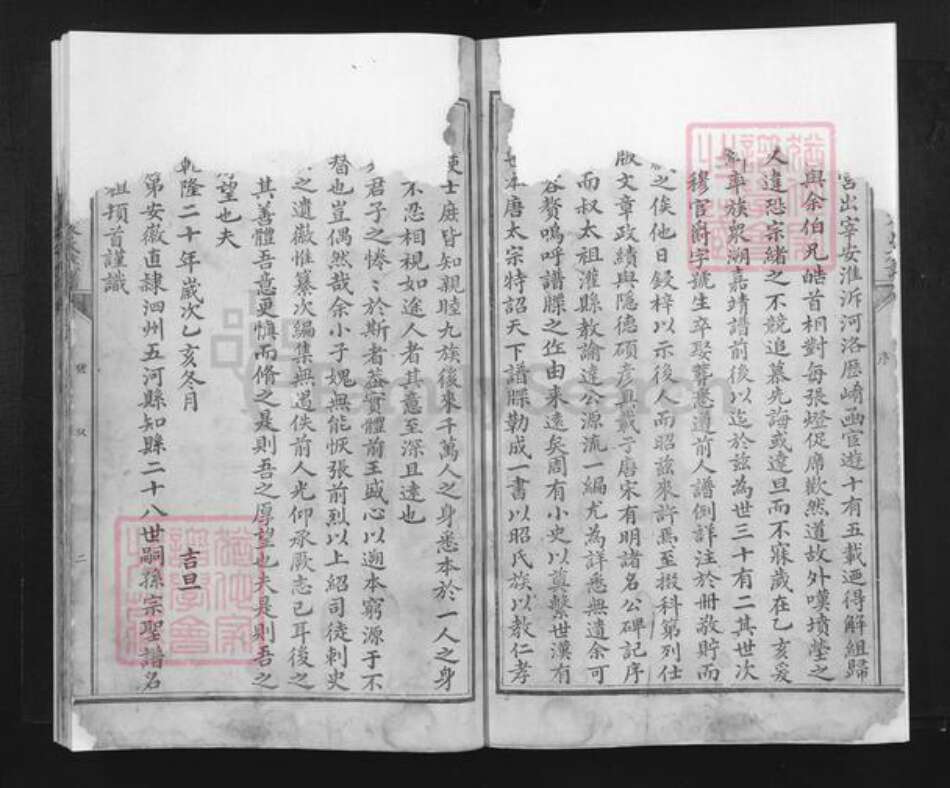 宮出宰安淮泝河洛歷崤函宦遊十有五載迺得解組歸
與余伯兄皓首相對每張燈促席歡然道故外嘆墳塋之
人違恐宗緒之不競追慕先誨或達旦而不寐歲在乙亥爰
率族眾溯嘉靖譜前後以迄於茲為世三十有二其世次
穆官爵字號生卒娶葬悉遵前人譜例詳注於冊敬貯而
之俟他日鋟梓以示後人而昭茲來許焉至掇科第列仕
版文章政績與隱德碩彥具載于唐宋有明諸名公碑記序
而叔太祖灌縣教諭達公源流一編尤為詳悉無遺余可
容贅嗚呼譜牒之作由來遠矣周有小史以奠繫世漢有
本唐太宗特詔天下譜牒勒成一書以昭氏族以教仁孝
使士庶皆知親睦九族後來千萬人之身悉本於一人之身
不忍相視如途人者其意至深且遠也
君子之惓〻於斯者葢實體前王盛心以遡本窮源于不
替也豈偶然哉余小子媿無能恢張前烈以上紹司徒刺史
之遺徽惟纂次編集無過佚前人光仰承厥志已耳後之
其善體吾意更慎而脩之是則吾之厚望也夫是則吾之
望也夫
乾隆二十年歲次乙亥冬月
吉旦
第安徽直隸泗州五河縣知縣二十八世嗣孫宗聖譜名
祖頓首謹識
序
二
FamilySearch